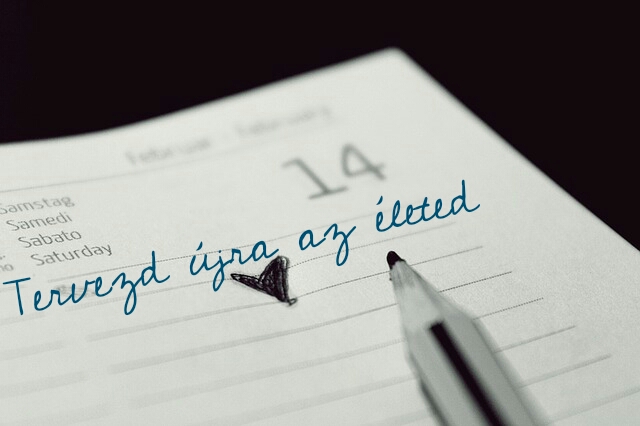 Februar · February
14
Samstag
Samedi
Sabato
Saturday
Tervezd újra az életed